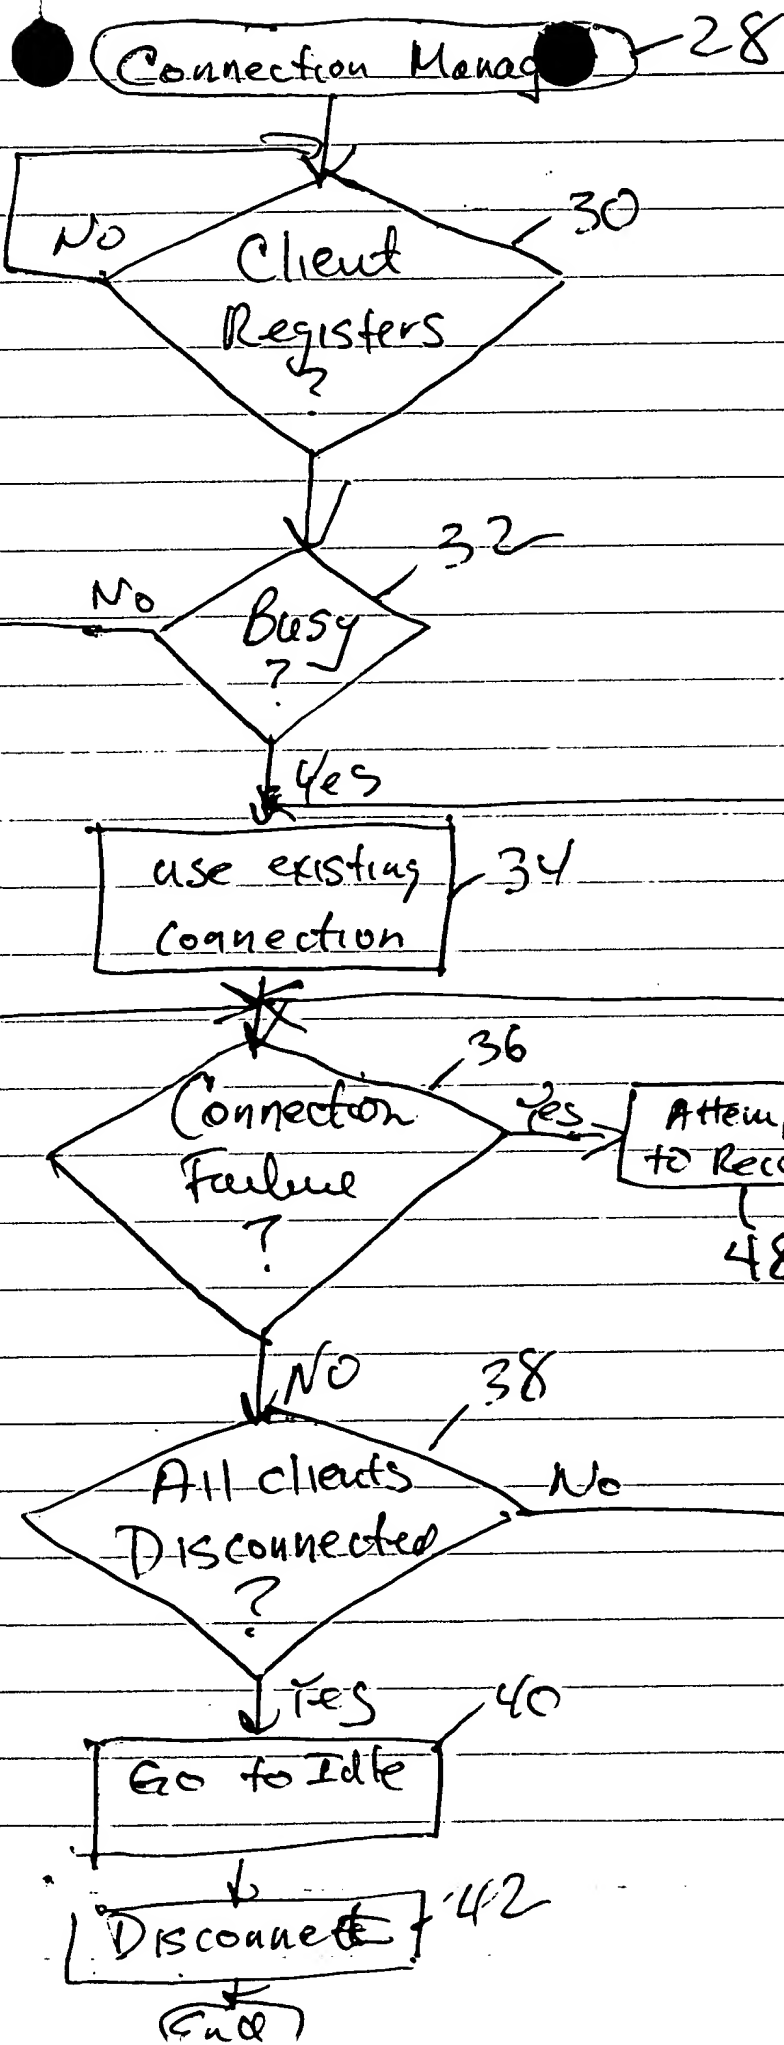 Connection Manag
28
No
30
Client
Registers
?
32
No
Busy
?
Yes
use existing
34
Connection
36
Connection
Failure
?
Yes
Attem
to Reco
48
NO
38
All clients
Disconnected
?
No
Yes
40
Go to Idle
42
Disconnect
End